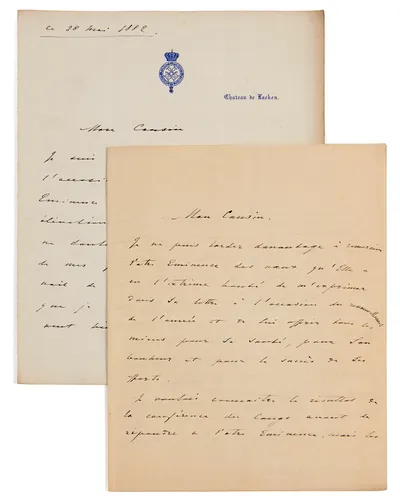 ce 28 Mai 1882
Chateau de Laeken.
Mon Cousin
Je suis
l'occasio
Eminence
élévation
ne doute
de mes
nait de
que je
Mon Cousin.
Je ne puis tarder davantage à remercier
Votre Eminence des vœux qu'Elle a
eu l'extrême bonté de m'exprimer
dans Sa lettre à l'occasion du renouvellement
de l'année et de lui offrir tous les
miens pour Sa Santé, pour Son
bonheur et pour le succès de Ses
efforts.
Je voulais connaitre le résultat de
la conférence du Congo avant de
répondre à Votre Eminence, mais les